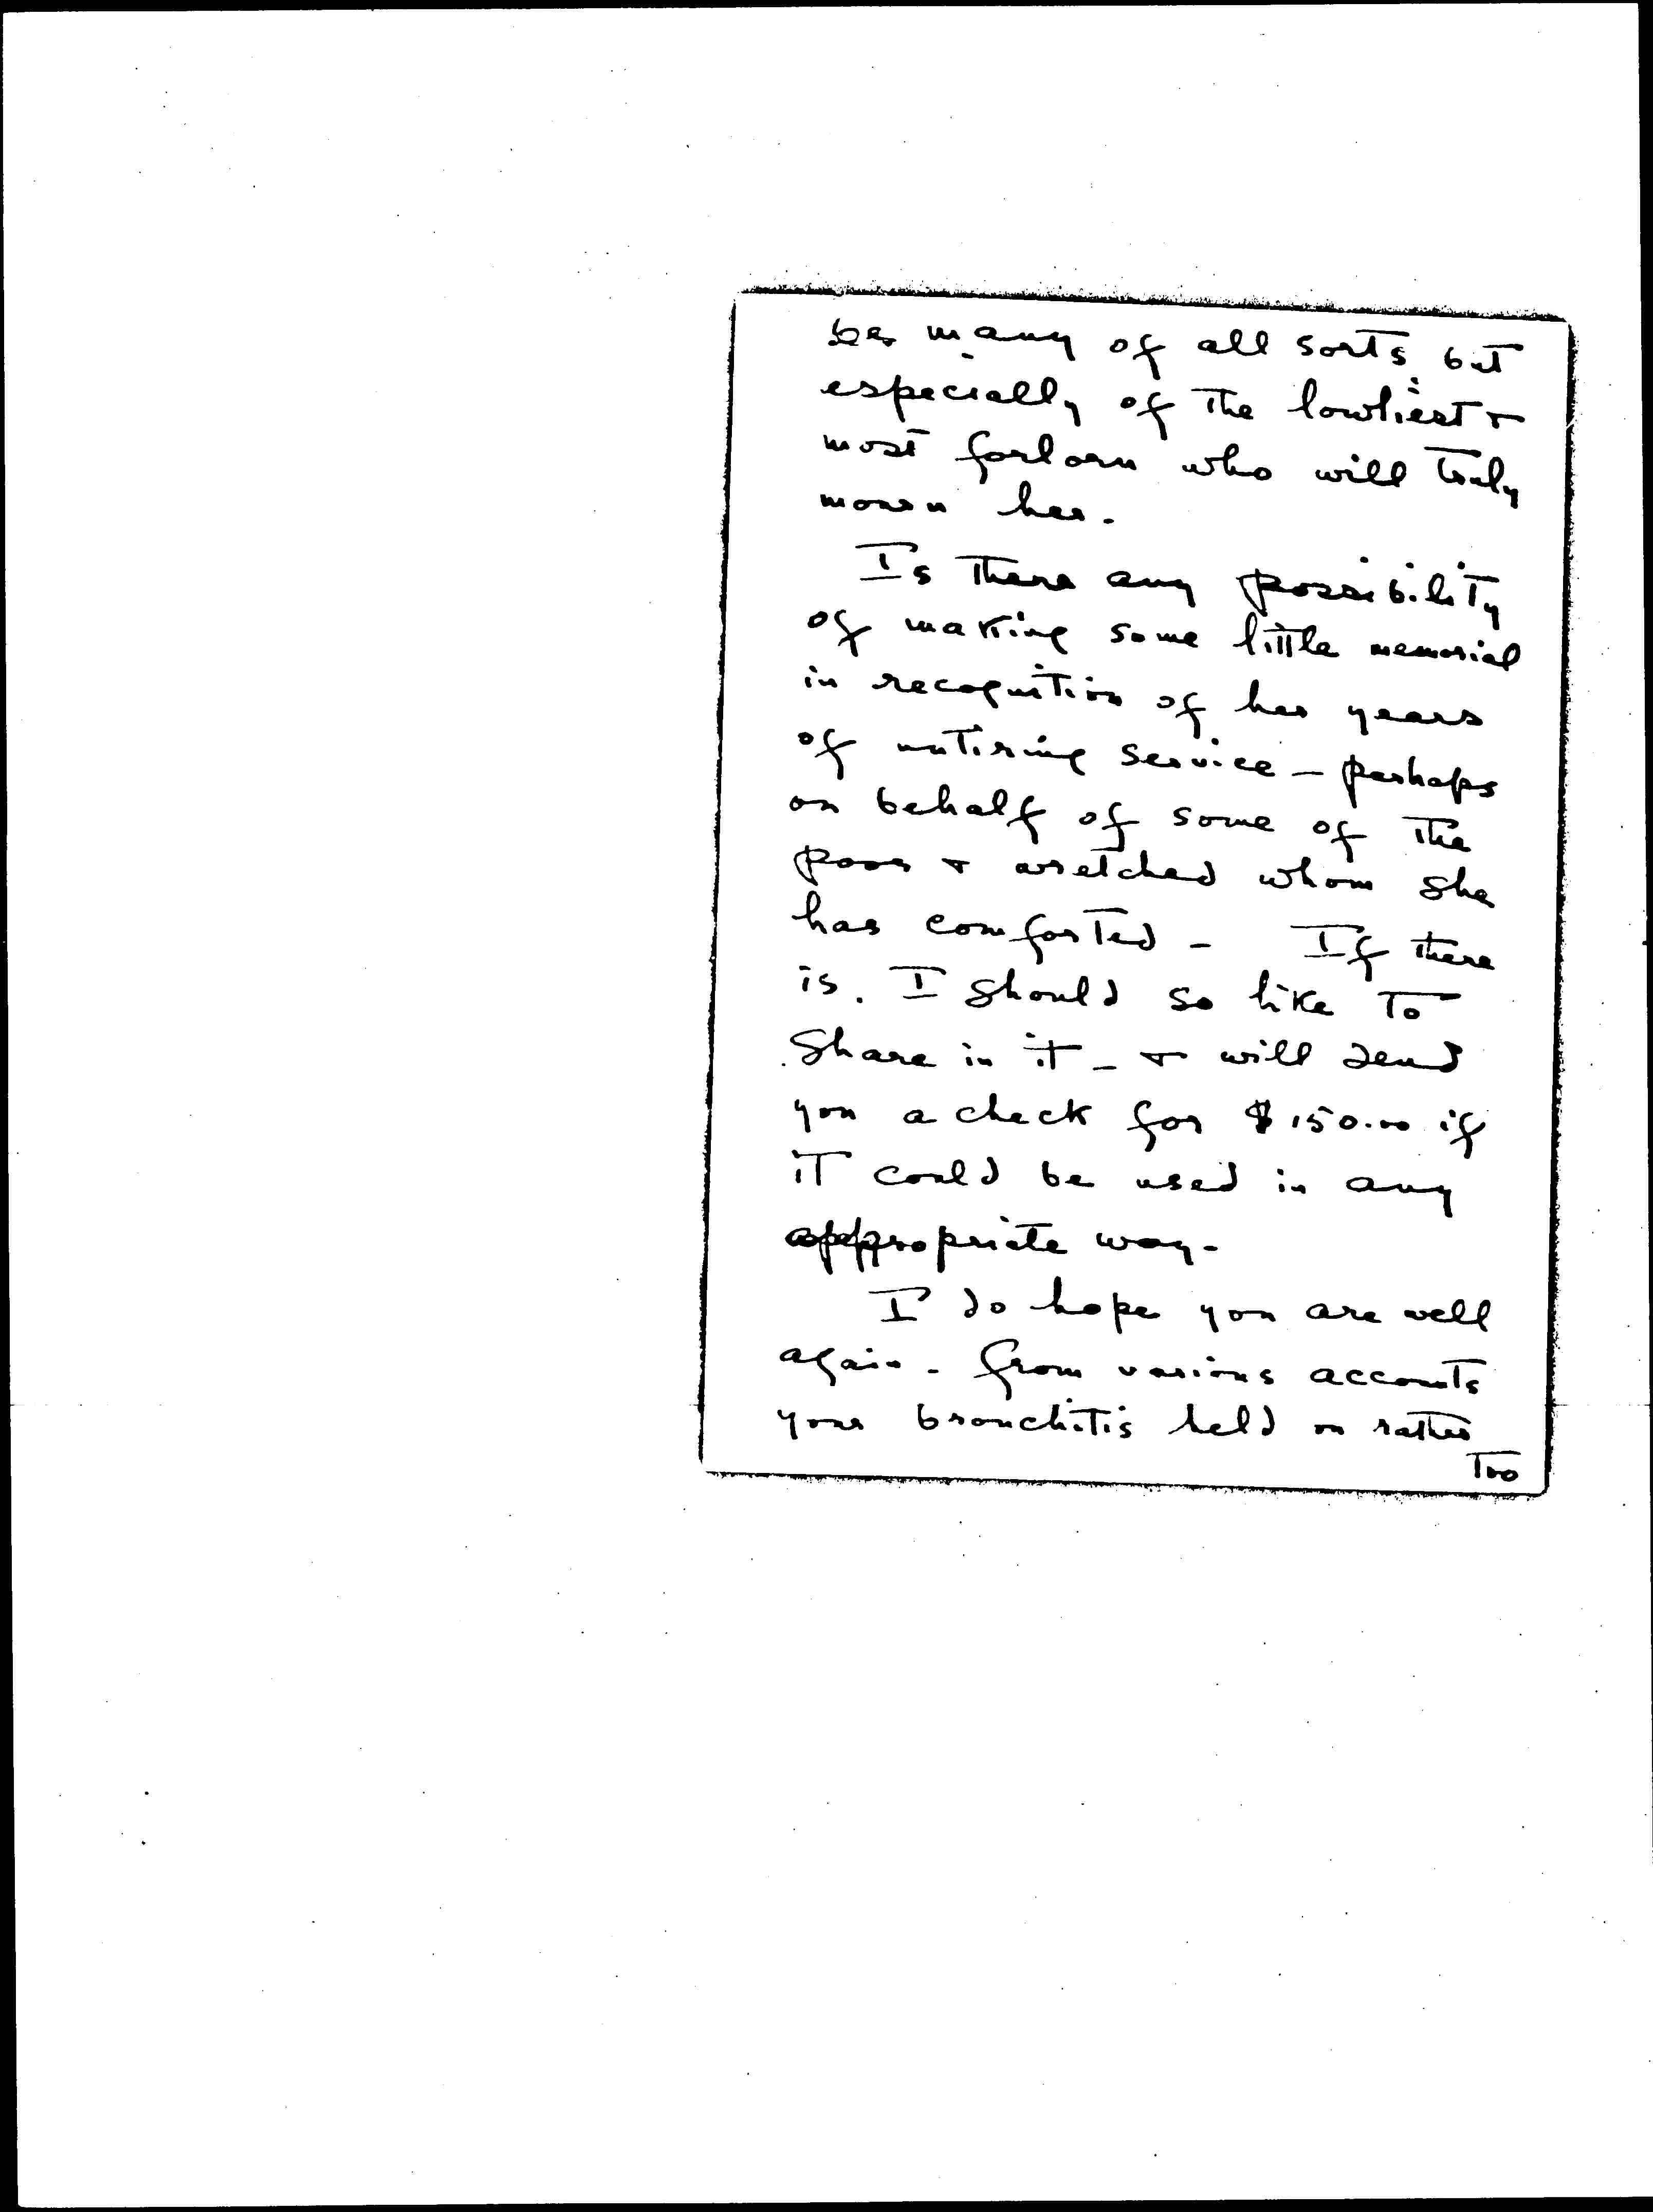 be many of all sorts but
especially of the lowliest &
most forlorn who will truly
mourn her.
Is there any possibility
of making some little memorial
in recognition of her years
of untiring service – perhaps
on behalf of some of the
poor & wretched whom she
has comforted – If there
is. I should so like to
share in it – & will send
you a check for $150.00 if
it could be used in any
appropriate way-
I do hope you are well
again - From various accounts
your bronchitis held on rather
too